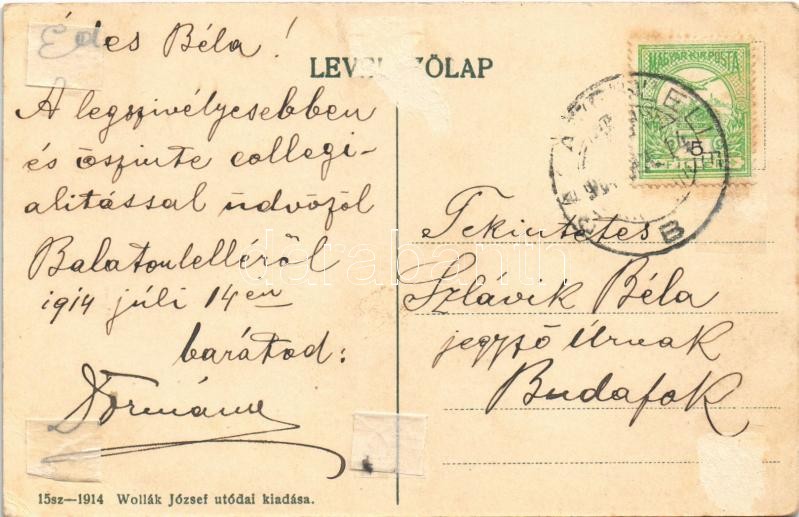 Édes Béla!
LEVELEZŐLAP
A legszivélyesebben
és őszinte collegi-
alitással üdvözöl
Balatonlelléről
1914 júli 14 en
barátod:
Tekintetes
Szlávik Béla
jegyző Úrnak
Budafok
MAGYAR KIR. POSTA
5
B
15sz—1914 Wollák József utódai kiadása.